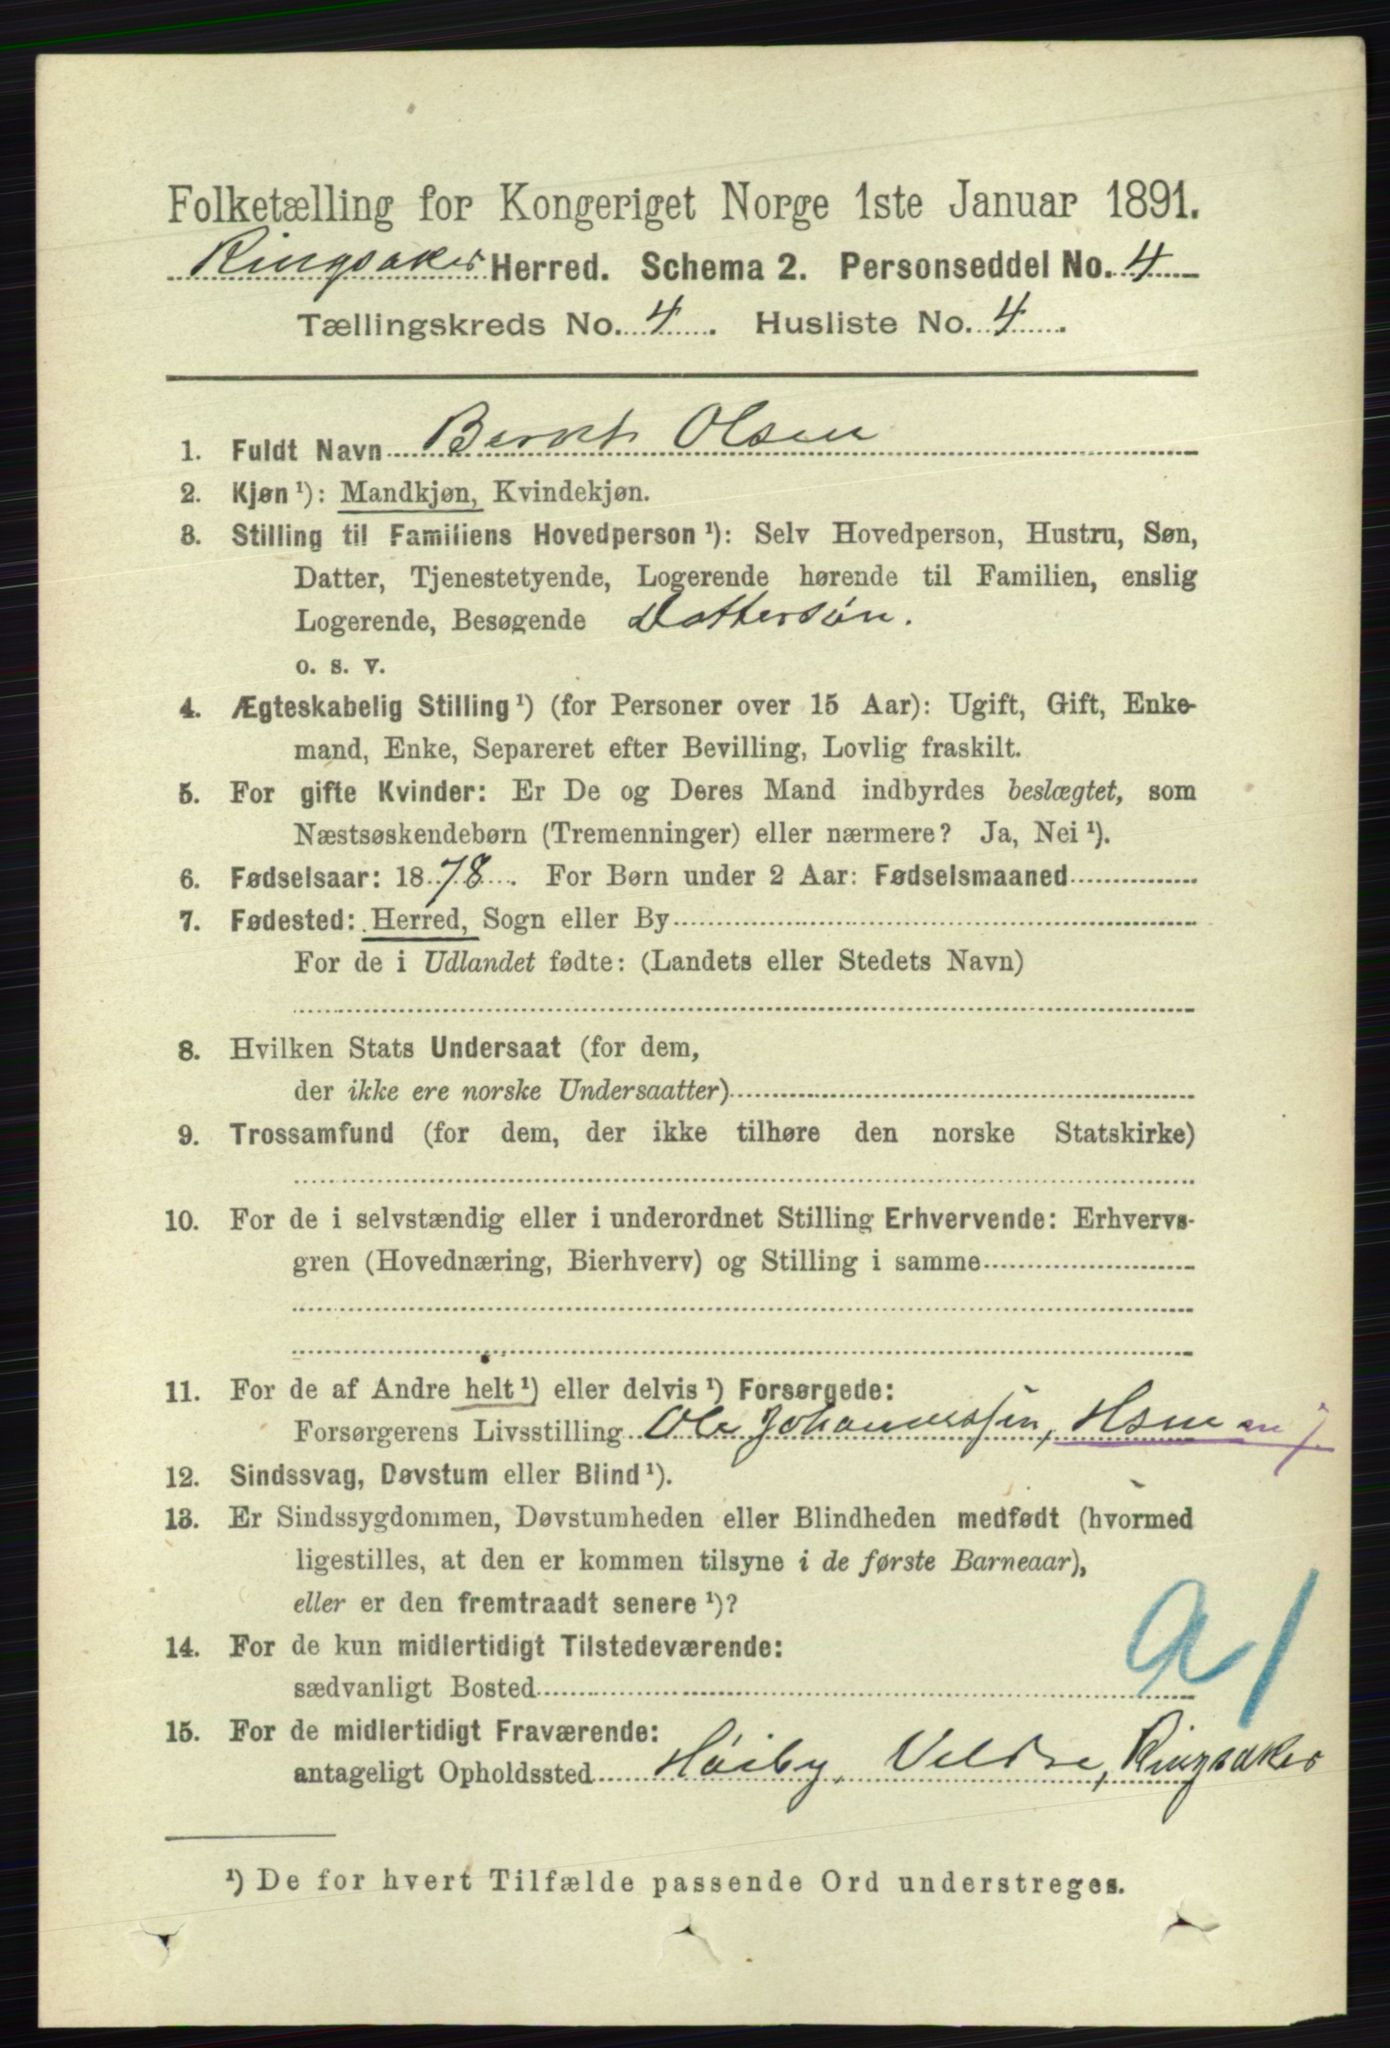 Folketælling for Kongeriget Norge 1ste Januar 1891.
Ringsaker Herred. Schema 2. Personseddel No. 4
Tællingskreds No. 4. Husliste No. 4.
1. Fuldt Navn Bernt Olsen
2. Kjøn ¹): Mandkjøn, Kvindekjøn.
3. Stilling til Familiens Hovedperson ¹): Selv Hovedperson, Hustru, Søn,
Datter, Tjenestetyende, Logerende hørende til Familien, enslig
Logerende, Besøgende Dattersøn.
o. s. v.
4. Ægteskabelig Stilling ¹) (for Personer over 15 Aar): Ugift, Gift, Enke-
mand, Enke, Separeret efter Bevilling, Lovlig fraskilt.
5. For gifte Kvinder: Er De og Deres Mand indbyrdes beslægtet, som
Næstsøskendebørn (Tremenninger) eller nærmere? Ja, Nei ¹).
6. Fødselsaar: 1878. For Børn under 2 Aar: Fødselsmaaned
7. Fødested: Herred, Sogn eller By
For de i Udlandet fødte: (Landets eller Stedets Navn)
8. Hvilken Stats Undersaat (for dem,
der ikke ere norske Undersaatter)
9. Trossamfund (for dem, der ikke tilhøre den norske Statskirke)
10. For de i selvstændig eller i underordnet Stilling Erhvervende: Erhvervs-
gren (Hovednæring, Bierhverv) og Stilling i samme
11. For de af Andre helt ¹) eller delvis ¹) Forsørgede:
Forsørgerens Livsstilling Ole Johannessen, Hsm
12. Sindssvag, Døvstum eller Blind ¹).
13. Er Sindssygdommen, Døvstumheden eller Blindheden medfødt (hvormed
ligestilles, at den er kommen tilsyne i de første Barneaar),
eller er den fremtraadt senere ¹)?
14. For de kun midlertidigt Tilstedeværende:
sædvanligt Bosted
15. For de midlertidigt Fraværende:
antageligt Opholdssted Høiby, Veldre, Ringsaker
¹) De for hvert Tilfælde passende Ord understreges.